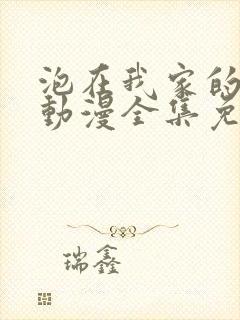 泡在我家的
動漫全集免
瑞鑫